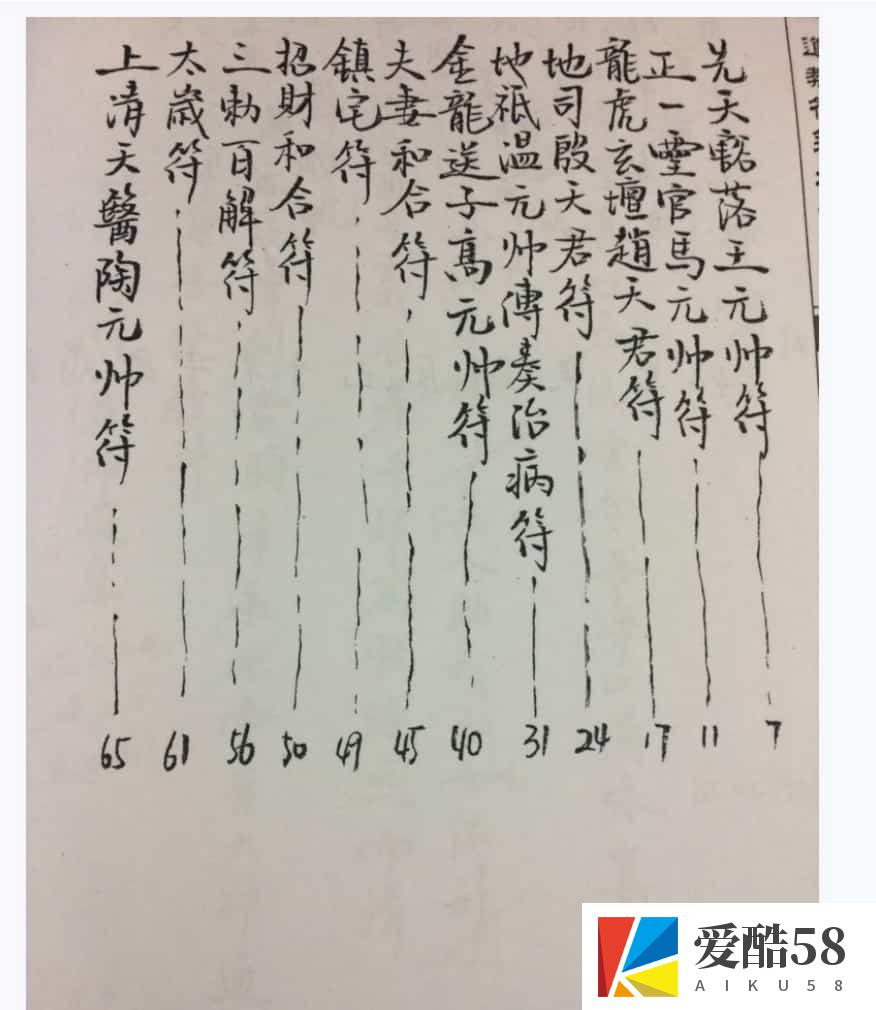 先天豁落王元帅符 7
正一靈官馬元帅符 11
龍虎玄壇趙天君符 17
地司殷天君符 24
地祇温元帅傳奏治病符 31
金龍送子高元帅符 40
夫妻和合符 45
鎮宅符 49
招財和合符 50
三勅百解符 56
太歲符 61
上清天醫陶元帅符 65
爱酷58
AIKU58